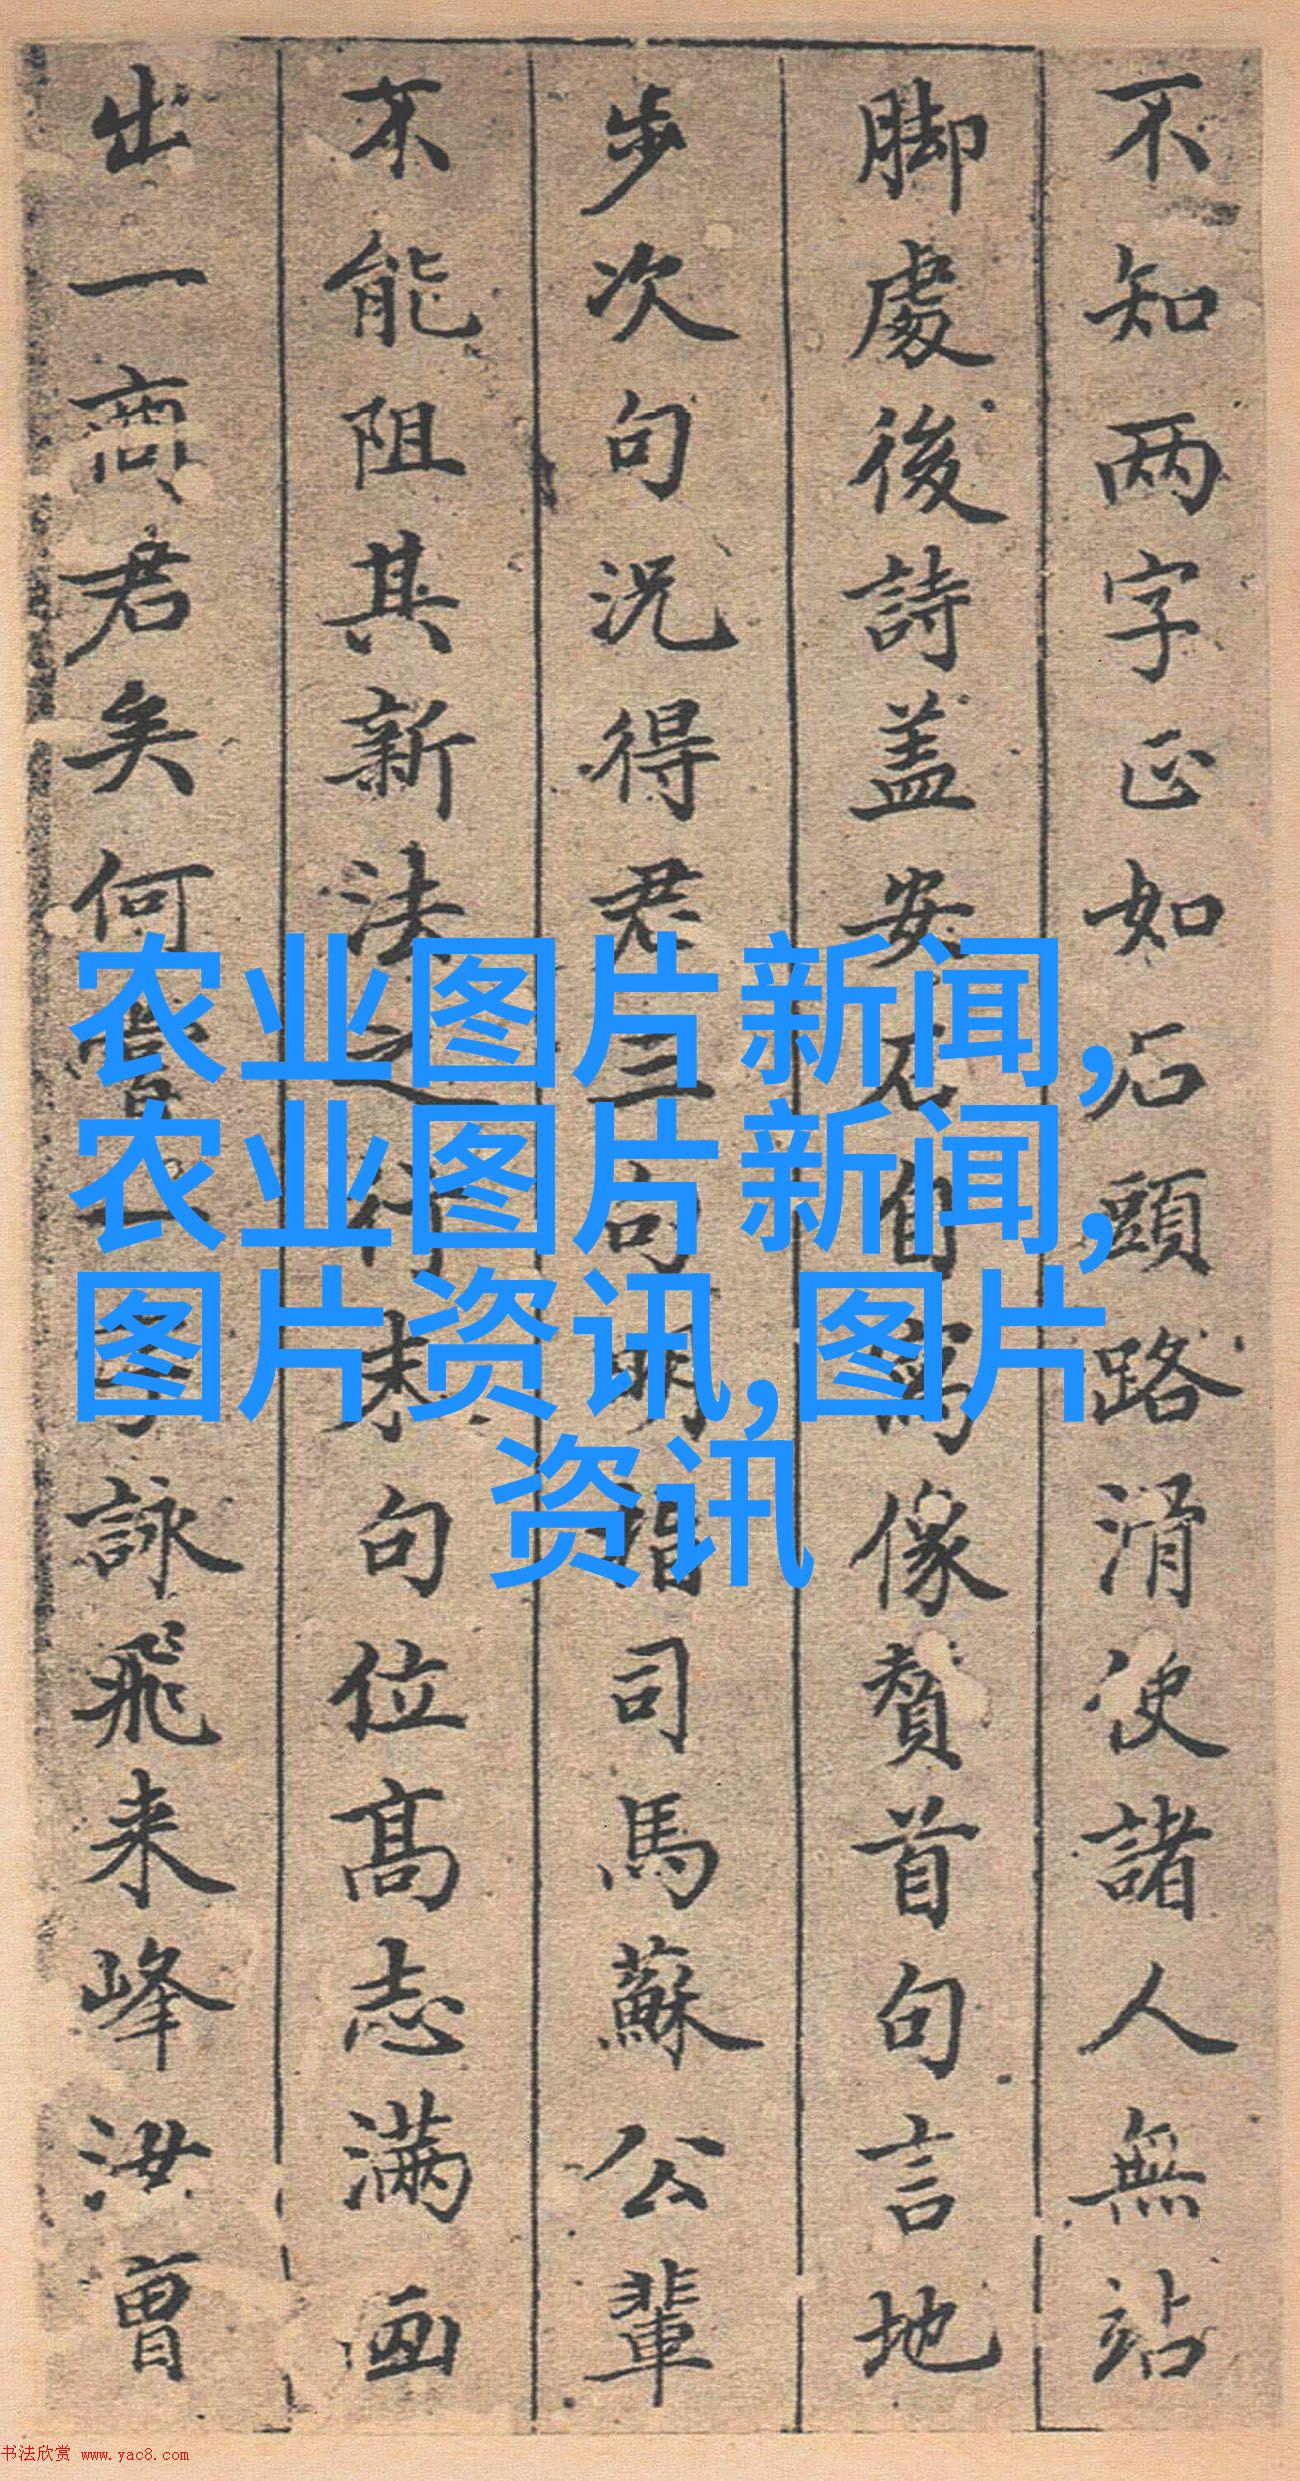 不知两字正如石頭路滑使諸人無站
脚處後詩盖安石自寫像贊首句言地
步次句况得君三句明指司馬蘇公輩
不能阻其新法之行末句位高志满画
出一商君矣何詠飛来峰汝曾
农业图片新闻,
农业图片新闻,
图片资讯,图片
资讯
书法欣赏 www.yac8.com